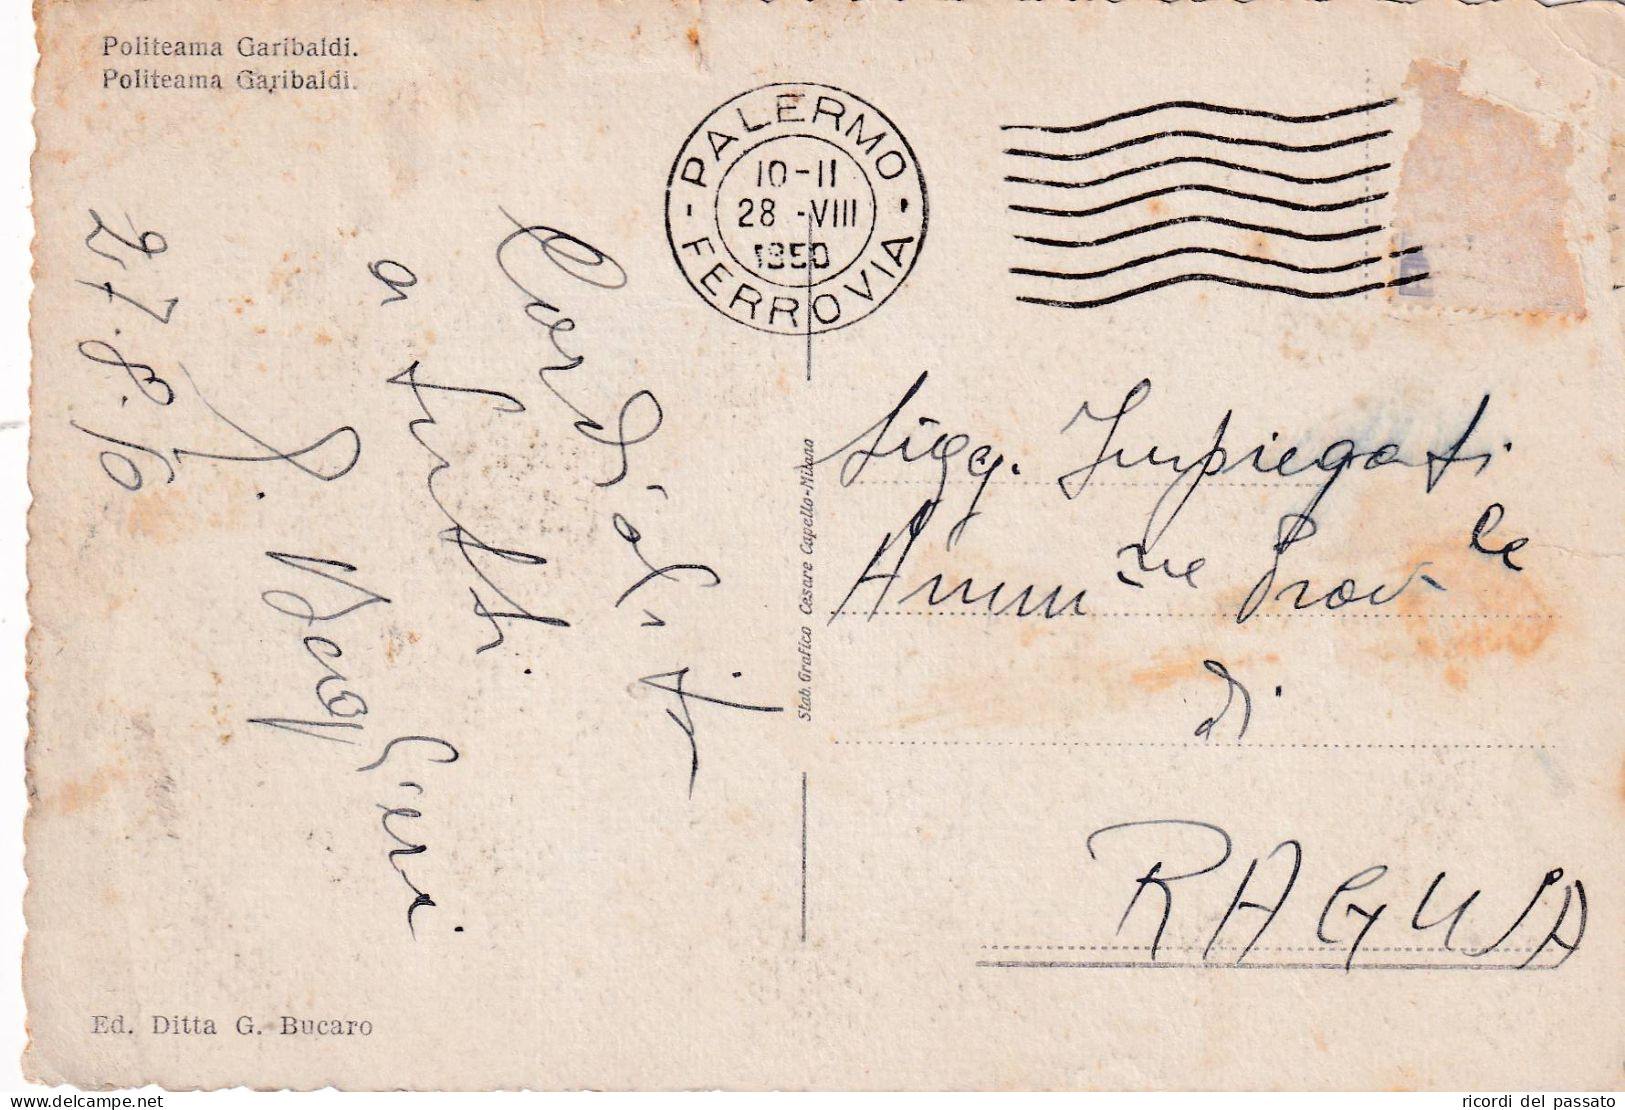 Politeama Garibaldi.
Politeama Garibaldi.
PALERMO
10-11
28 -VIII
1950
FERROVIA
27.8.50
Cordialità
a tutti
Sigg. Impiegati
Amm.ne Prov.le
di
RAGUSA
Stab. Grafico Cesare Capello-Milano
Ed. Ditta G. Bucaro
ricordi del passato
delcampe.net